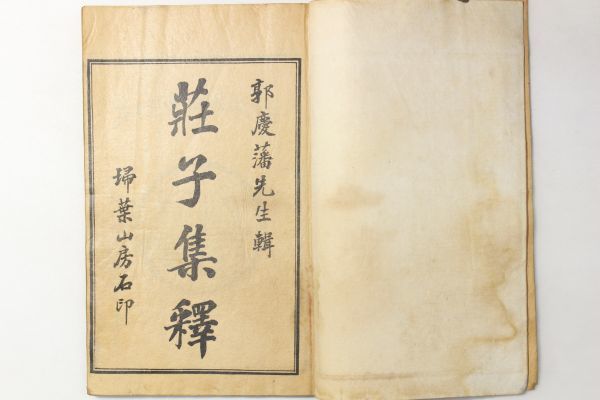 郭慶藩先生輯
莊子集釋
埽葉山房石印